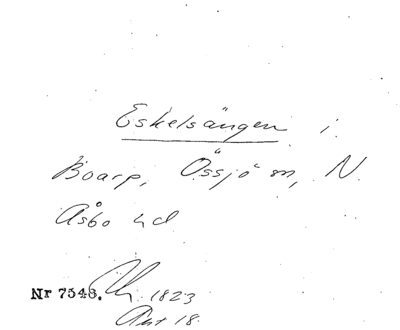 Eskelsängen i
Boarp, Össjö sn, N.
Åsbo hd
Nr 7548. 1823
Akt 18.